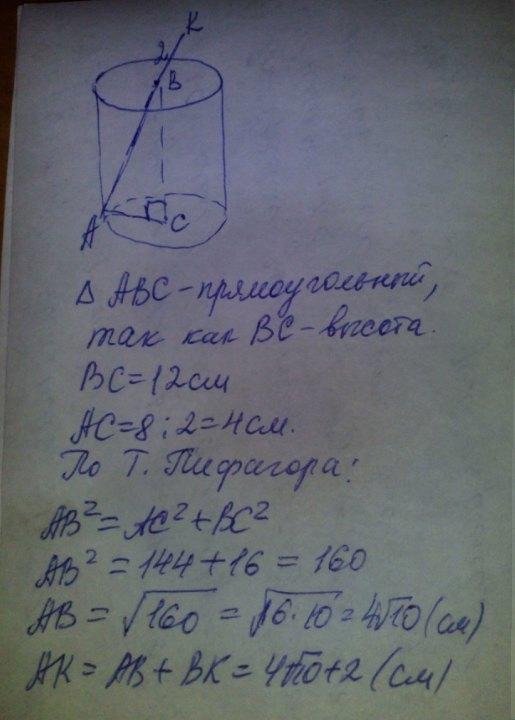 K
2
B
A
C
Δ ABC - прямоугольный,
так как BC - высота.
BC = 12 см
AC = 8 : 2 = 4 см.
По Т. Пифагора:
AB² = AC² + BC²
AB² = 144 + 16 = 160
AB = √160 = √16·10 = 4√10 (см)
AK = AB + BK = 4√10 + 2 (см)